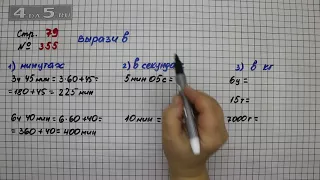 4 да 5.NET
Стр. 79
№ 355
вырази в
1) минутах
3ч 45 мин = 3·60+45=
=180+45 = 225 мин
6ч 40 мин = 6·60+40=
=360+40=400 мин
2) в секунда
5 мин 05 с =
10 мин =
3) в кг
6ц =
15т =
7000г =